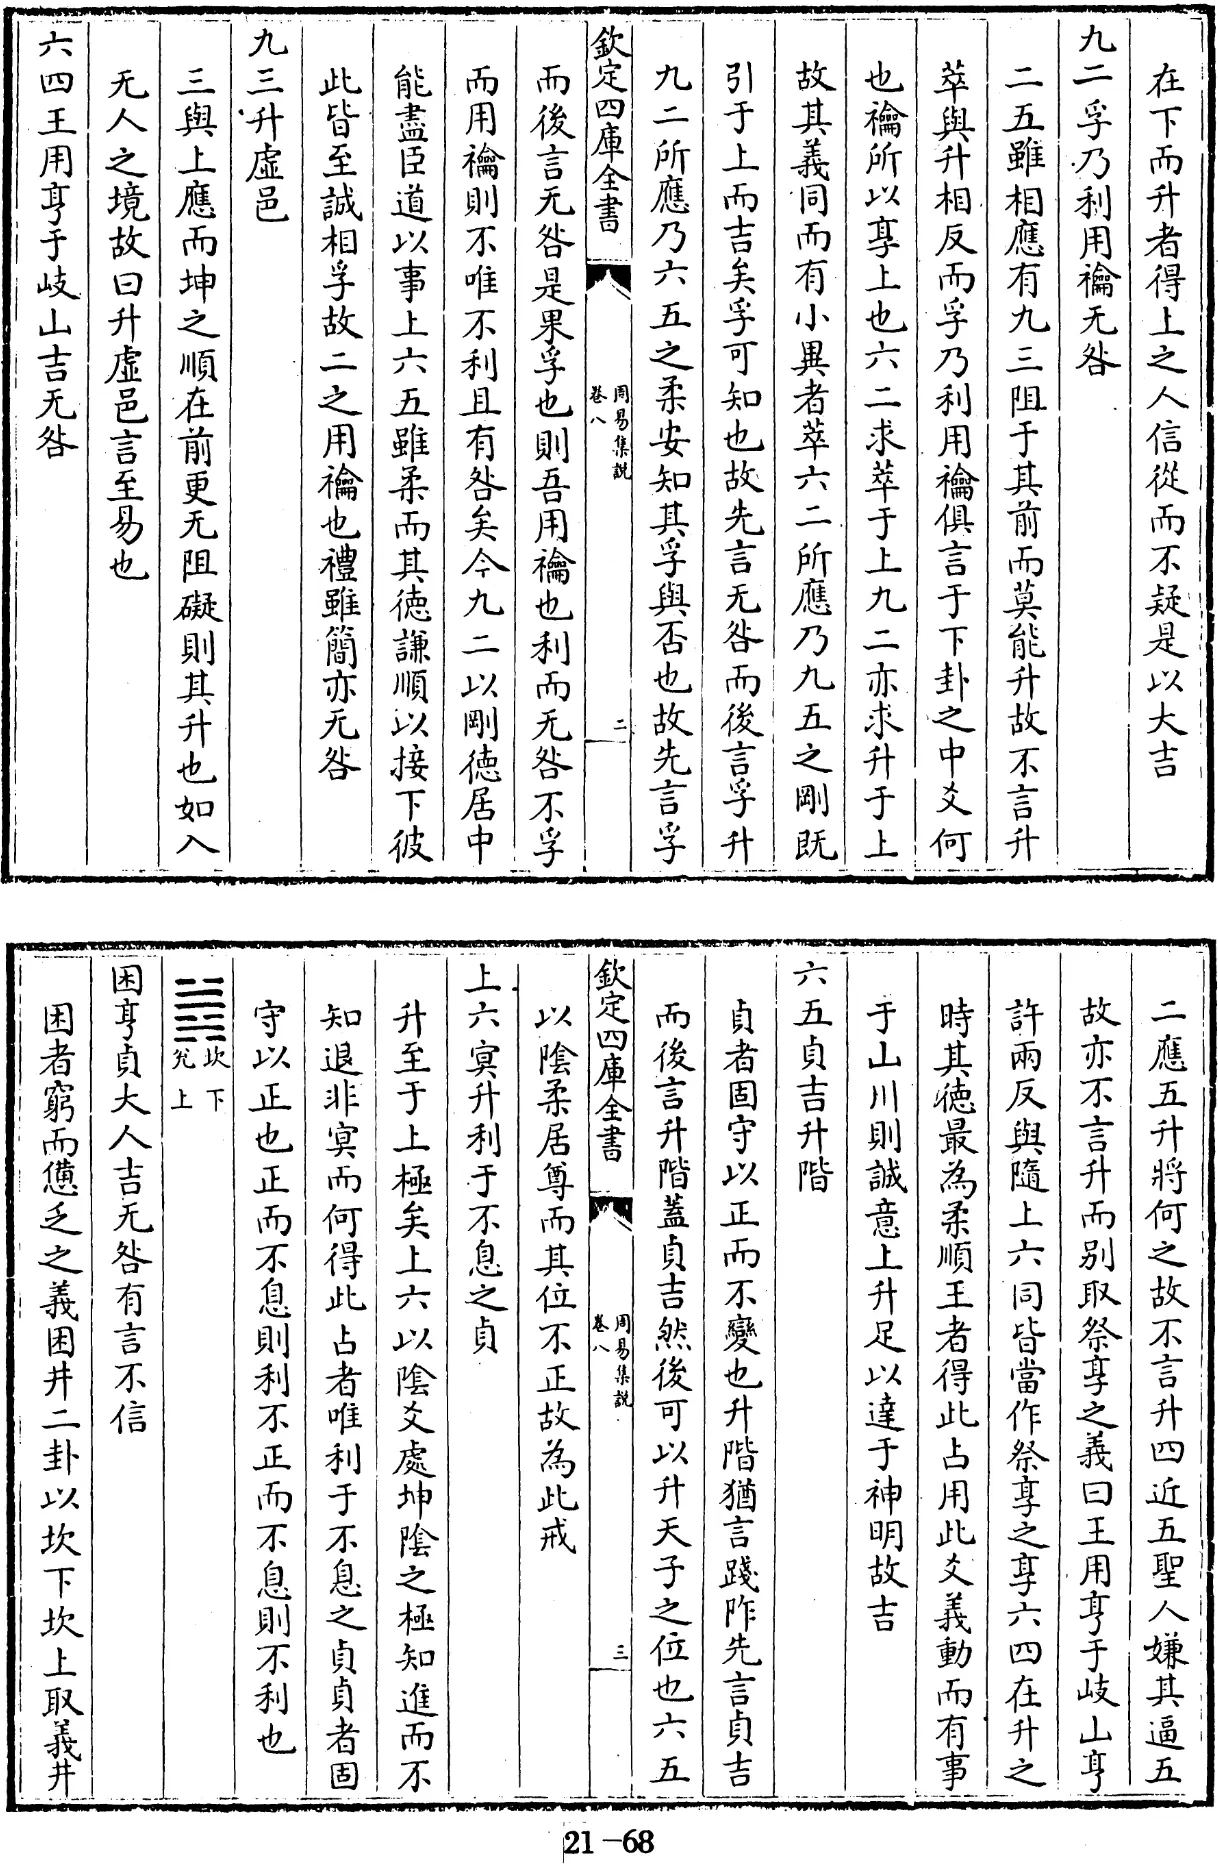 在下而升者得上之人信從而不疑是以大吉
九二孚乃利用禴无咎
二五雖相應有九三阻于其前而莫能升故不言升
萃與升相反而孚乃利用禴俱言于下卦之中爻何
也禴所以享上也六二求萃于上九二亦求升于上
故其義同而有小異者萃六二所應乃九五之剛既
引于上而吉矣孚可知也故先言无咎而後言孚升
九二所應乃六五之柔安知其孚與否也故先言孚
欽定四庫全書
周易集說
卷八
二
而後言无咎是果孚也則吾用禴也利而无咎不孚
而用禴則不唯不利且有咎矣今九二以剛德居中
能盡臣道以事上六五雖柔而其德謙順以接下彼
此皆至誠相孚故二之用禴也禮雖簡亦无咎
九三升虛邑
三與上應而坤之順在前更无阻礙則其升也如入
无人之境故曰升虛邑言至易也
六四王用亨于岐山吉无咎
二應五升將何之故不言升四近五聖人嫌其逼五
故亦不言升而别取祭享之義曰王用亨于岐山亨
許兩反與隨上六同皆當作祭享之享六四在升之
時其德最為柔順王者得此占用此爻義動而有事
于山川則誠意上升足以達于神明故吉
六五貞吉升階
貞者固守以正而不變也升階猶言踐阼先言貞吉
而後言升階蓋貞吉然後可以升天子之位也六五
欽定四庫全書
周易集說
卷八
三
以陰柔居尊而其位不正故為此戒
上六冥升利于不息之貞
升至于上極矣上六以陰爻處坤陰之極知進而不
知退非冥而何得此占者唯利于不息之貞貞者固
守以正也正而不息則利不正而不息則不利也
坎下
兊上
困亨貞大人吉无咎有言不信
困者窮而憊乏之義困井二卦以坎下坎上取義井
21-68